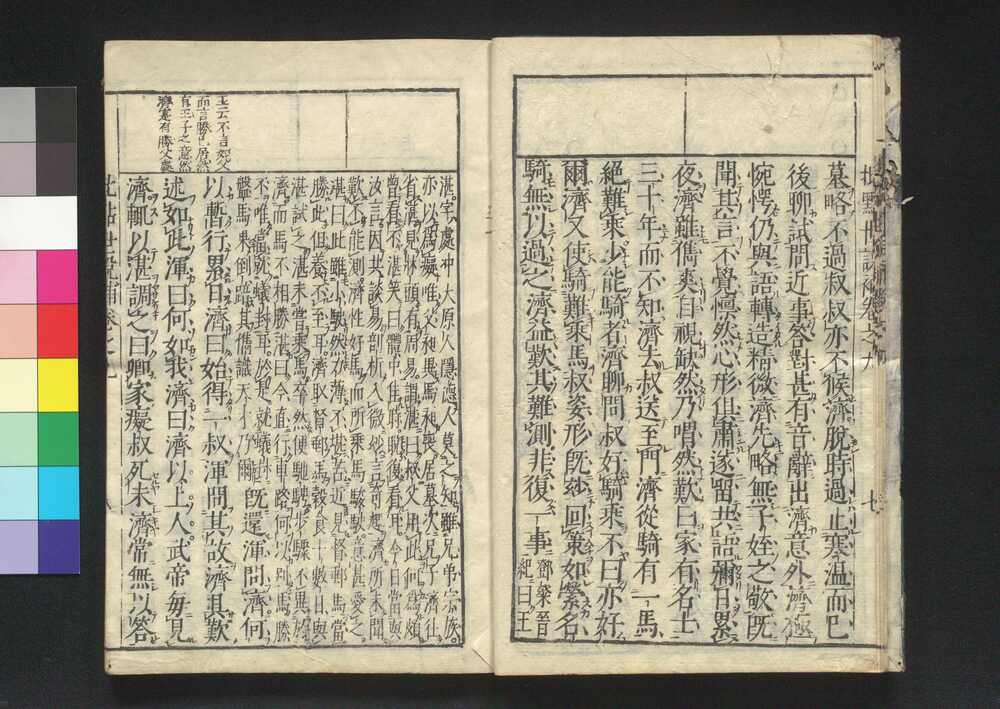 墓略不過叔叔亦不候濟脫時過止寒溫而已
後聊試問近事答對甚有音辭出濟意外濟極
惋愕仍與語轉造精微濟先略無子姪之敬既
聞其言不覺懍然心形俱肅遂留共語彌日累
夜濟雖儁爽自視缺然乃喟然歎曰家有名士
三十年而不知濟去叔送至門濟從騎有一馬
絕難乘少能騎者濟聊問叔好騎乘不曰亦好
爾濟又使騎難乘馬叔姿形既妙回策如縈名
騎無以過之濟益歎其難測非復一事 鄧粲晉紀曰王
王云不言如父
而言勝已居然
有王子之意然
濟寔有勝父處
湛字處冲大原人隱德人莫之知雖兄弟宗族
亦以爲癡唯父昶異焉昶喪居墓次兄子濟往
省湛見牀頭有周易謂湛曰叔父用此何爲頗
曾看不湛笑曰體中佳時脫復看耳今日當與
汝言因共談易剖析入微妙言奇趣濟所未聞
歎不能測濟性好馬而所乘馬駿駛意甚愛之
湛曰此雖小駛然力薄不堪苦近見督郵馬當
勝此但養不至耳濟取督郵馬穀食十數日與
湛試之湛未嘗乘馬卒然便馳騁步驟不異於
濟而馬不相勝湛曰今直行車路何以別馬勝
不唯當就蟻封耳於是就蟻封
盤馬果倒踣其儁識天才乃爾
既還渾問濟何
以暫行累日濟曰始得一叔渾問其故濟具歎
述如此渾曰何如我濟曰濟以上人武帝每見
濟輒以湛調之曰卿家癡叔死未濟常無以答